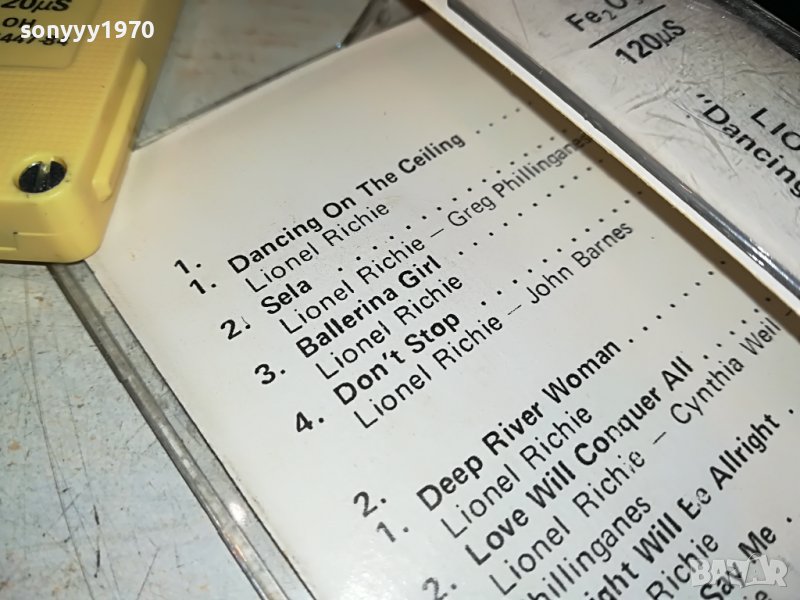 sonyyy1970
20µS
OH
Fe₂O
120µS
LIO
"Dancing
1.
1. Dancing On The Ceiling ....
Lionel Richie
2. Sela ..........
Lionel Richie – Greg Phillinganes
3. Ballerina Girl ......
Lionel Richie
4. Don't Stop ..........
Lionel Richie – John Barnes
2.
1. Deep River Woman ......
Lionel Richie
2. Love Will Conquer All .....
Lionel Richie – Cynthia Weil
Phillinganes
ight Will Be Allright ..
Richie
Say Me .
BAZAR